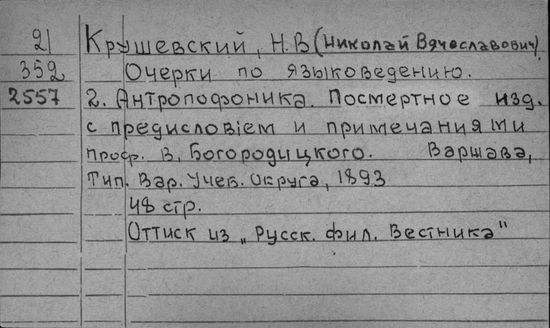 21 Крушевский, Н.В (Николай Вячеславович)
352 Очерки по языковедению.
2557 2. Антропофоника. Посмертное изд.
с предисловіем и примечаниями
проф. В. Богородицкого. Варшава,
Тип. Вар. Учеб. Округа, 1893
48 стр.
Оттиск из „Русск. фил. Вестника"